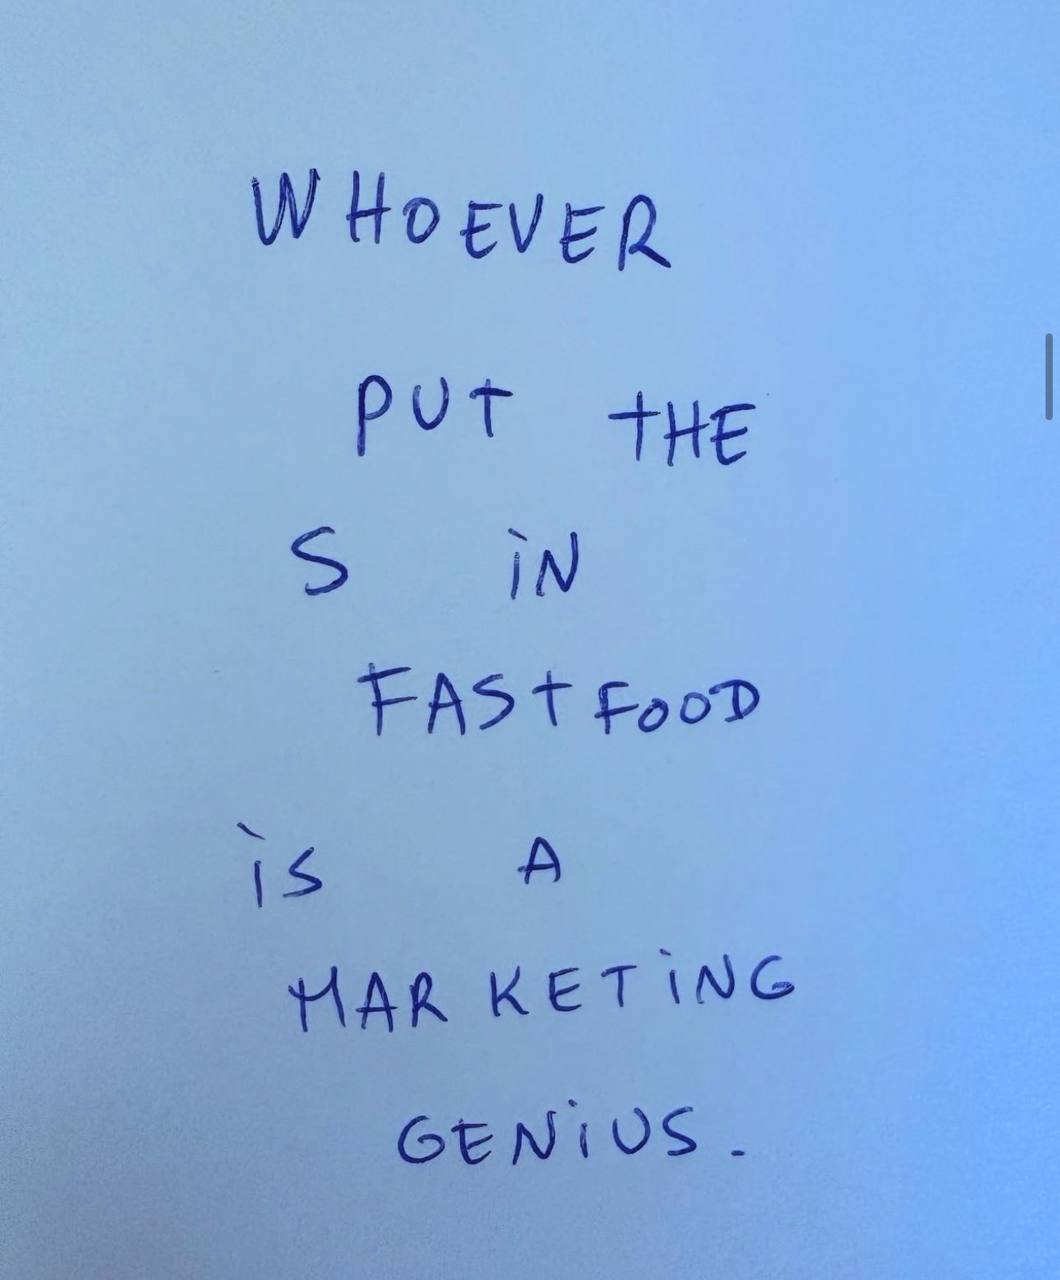 WHOEVER
PUT THE
S iN
FAST FOOD
is A
MARKETiNG
GENiUS.